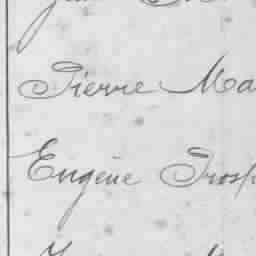 Pierre Ma
Eugène Prosp